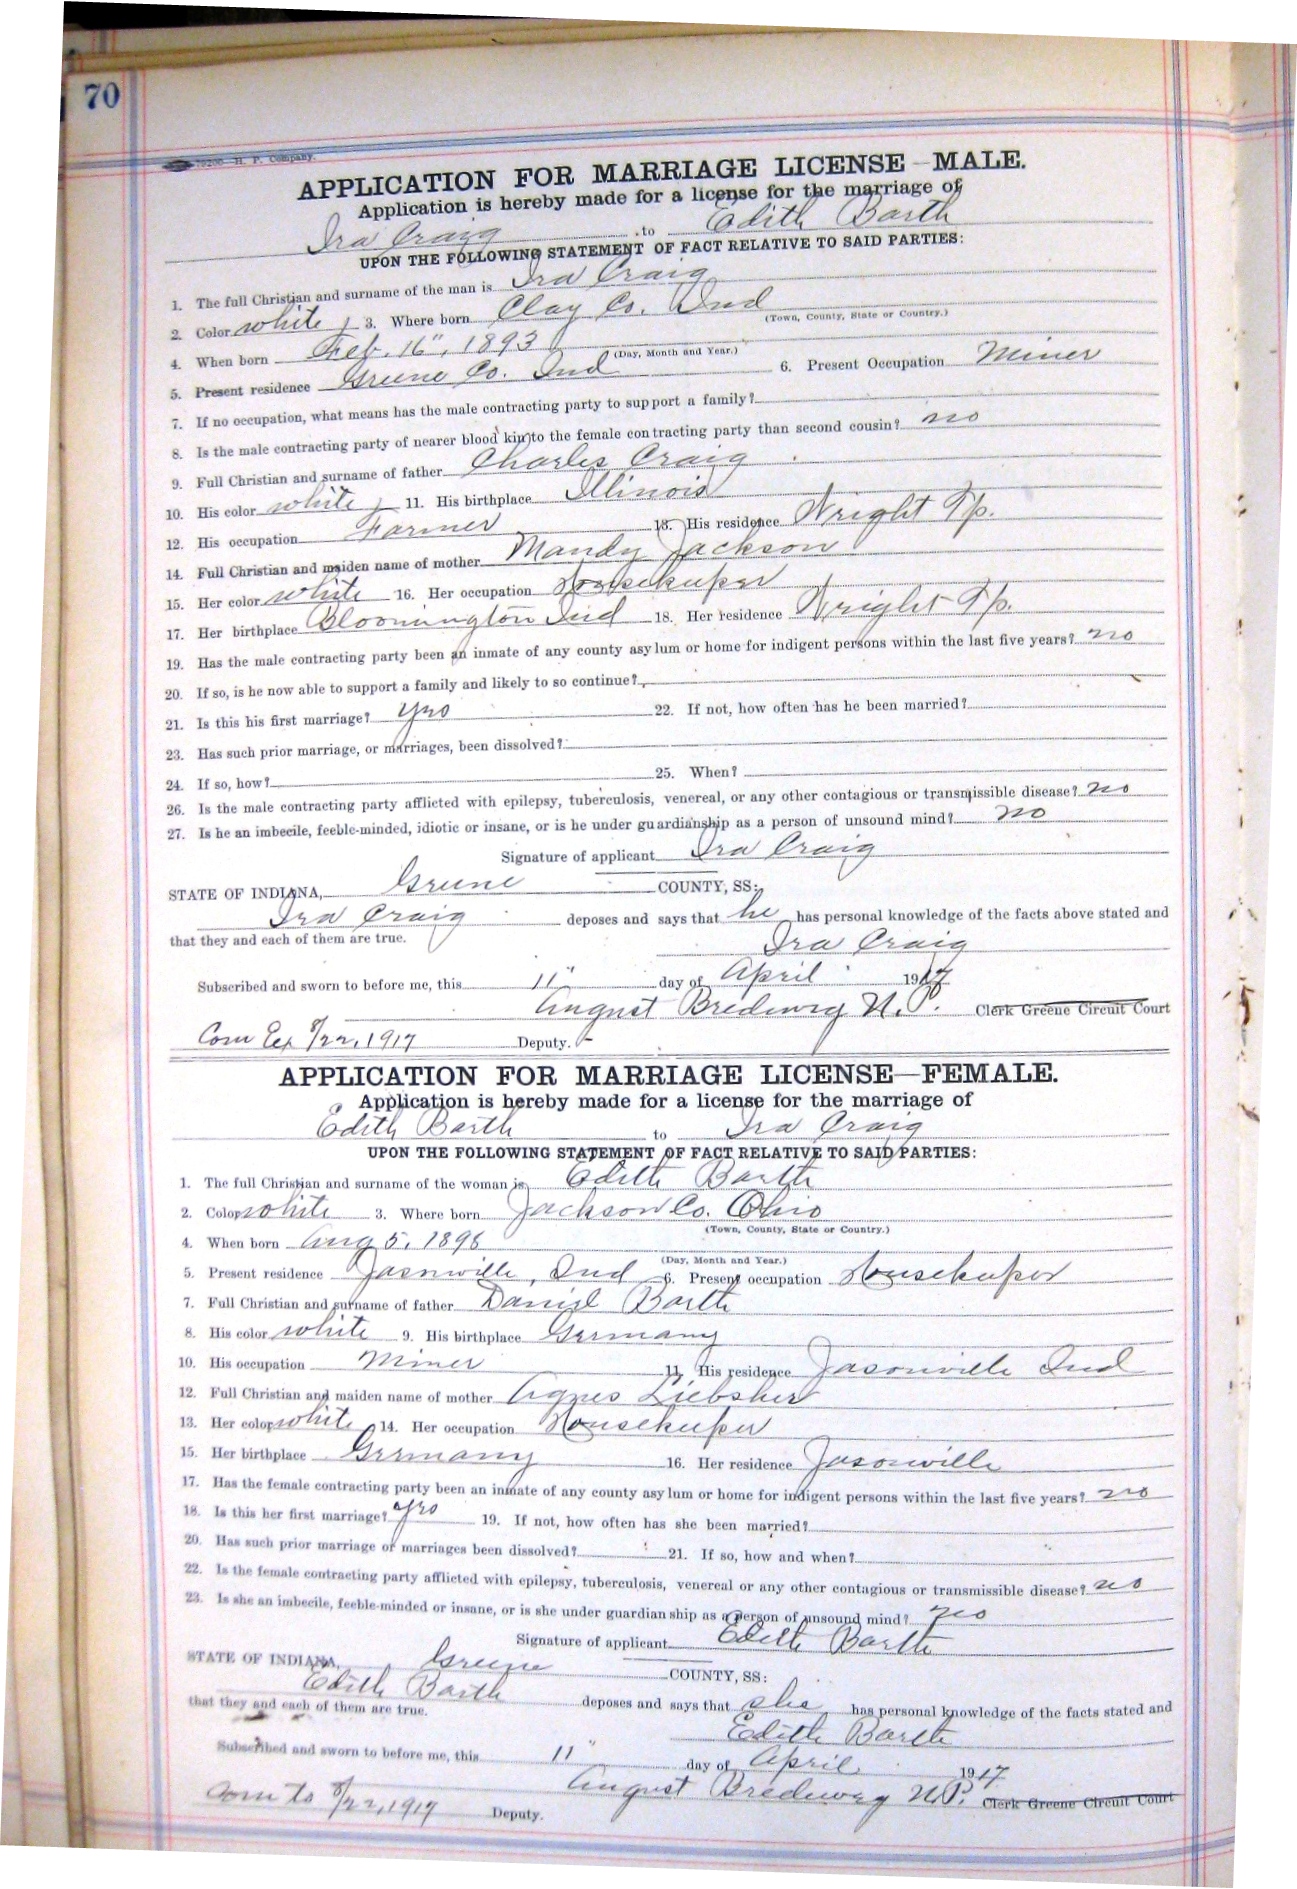 70
79200 H. P. Company.
APPLICATION FOR MARRIAGE LICENSE—MALE.
Application is hereby made for a license for the marriage of
Ira Craig to Edith Barth
UPON THE FOLLOWING STATEMENT OF FACT RELATIVE TO SAID PARTIES:
1. The full Christian and surname of the man is Ira Craig
2. Color white 3. Where born Clay Co. Ind
(Town, County, State or Country.)
4. When born Feb. 16", 1893
(Day, Month and Year.)
5. Present residence Greene Co. Ind 6. Present Occupation Miner
7. If no occupation, what means has the male contracting party to support a family?
8. Is the male contracting party of nearer blood kin to the female contracting party than second cousin? no
9. Full Christian and surname of father Charles Craig
10. His color white 11. His birthplace Illinois
12. His occupation Farmer 13. His residence Wright Tp.
14. Full Christian and maiden name of mother Mandy Jackson
15. Her color white 16. Her occupation Housekeeper
17. Her birthplace Bloomington Ind 18. Her residence Wright Tp.
19. Has the male contracting party been an inmate of any county asylum or home for indigent persons within the last five years? no
20. If so, is he now able to support a family and likely to so continue?
21. Is this his first marriage? yes 22. If not, how often has he been married?
23. Has such prior marriage, or marriages, been dissolved?
24. If so, how? 25. When?
26. Is the male contracting party afflicted with epilepsy, tuberculosis, venereal, or any other contagious or transmissible disease? no
27. Is he an imbecile, feeble-minded, idiotic or insane, or is he under guardianship as a person of unsound mind? no
Signature of applicant Ira Craig
STATE OF INDIANA, Greene COUNTY, SS:
Ira Craig deposes and says that he has personal knowledge of the facts above stated and
that they and each of them are true.
Ira Craig
Subscribed and sworn to before me, this 11" day of April 1917
August Bredeweg N.P. Clerk Greene Circuit Court
Com Ex 8/22, 1917 Deputy.
APPLICATION FOR MARRIAGE LICENSE—FEMALE.
Application is hereby made for a license for the marriage of
Edith Barth to Ira Craig
UPON THE FOLLOWING STATEMENT OF FACT RELATIVE TO SAID PARTIES:
1. The full Christian and surname of the woman is Edith Barth
2. Color white 3. Where born Jackson Co. Ohio
(Town, County, State or Country.)
4. When born Aug 5, 1898
(Day, Month and Year.)
5. Present residence Jasonville, Ind 6. Present occupation Housekeeper
7. Full Christian and surname of father Daniel Barth
8. His color white 9. His birthplace Germany
10. His occupation Miner 11. His residence Jasonville Ind
12. Full Christian and maiden name of mother Agnes Liebsher
13. Her color white 14. Her occupation Housekeeper
15. Her birthplace Germany 16. Her residence Jasonville
17. Has the female contracting party been an inmate of any county asylum or home for indigent persons within the last five years? no
18. Is this her first marriage? yes 19. If not, how often has she been married?
20. Has such prior marriage or marriages been dissolved? 21. If so, how and when?
22. Is the female contracting party afflicted with epilepsy, tuberculosis, venereal or any other contagious or transmissible disease? no
23. Is she an imbecile, feeble-minded or insane, or is she under guardianship as a person of unsound mind? no
Signature of applicant Edith Barth
STATE OF INDIANA, Greene COUNTY, SS:
Edith Barth deposes and says that she has personal knowledge of the facts stated and
that they and each of them are true.
Edith Barth
Subscribed and sworn to before me, this 11" day of April 1917
August Bredeweg N.P. Clerk Greene Circuit Court
Com to 8/22, 1917 Deputy.